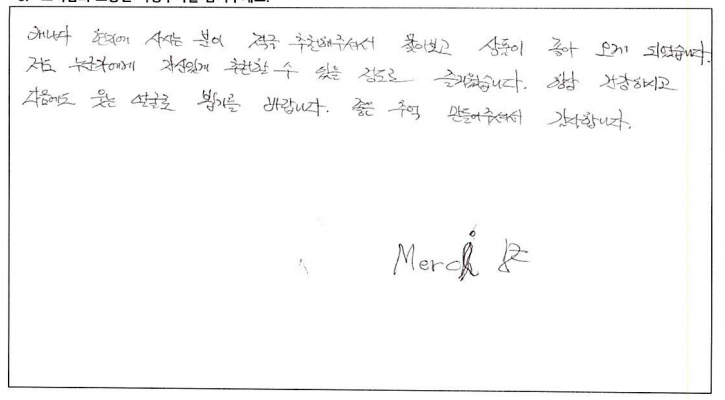 캐나다 현지에 사시는 분이 적극 추천해주셔서 찾아보고 상품이 좋아 오게 되었습니다.
저도 누군가에게 자신있게 추천할 수 있을 정도로 즐거웠습니다. 항상 건강하시고
다음에도 웃는 얼굴로 뵙기를 바랍니다. 좋은 추억 만들어주셔서 감사합니다.
Merci